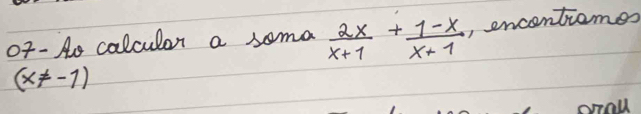 07- Ao calcular a soma 2x/x+1 + 1-x/x+1, encontramos
(x≠-1)
grau